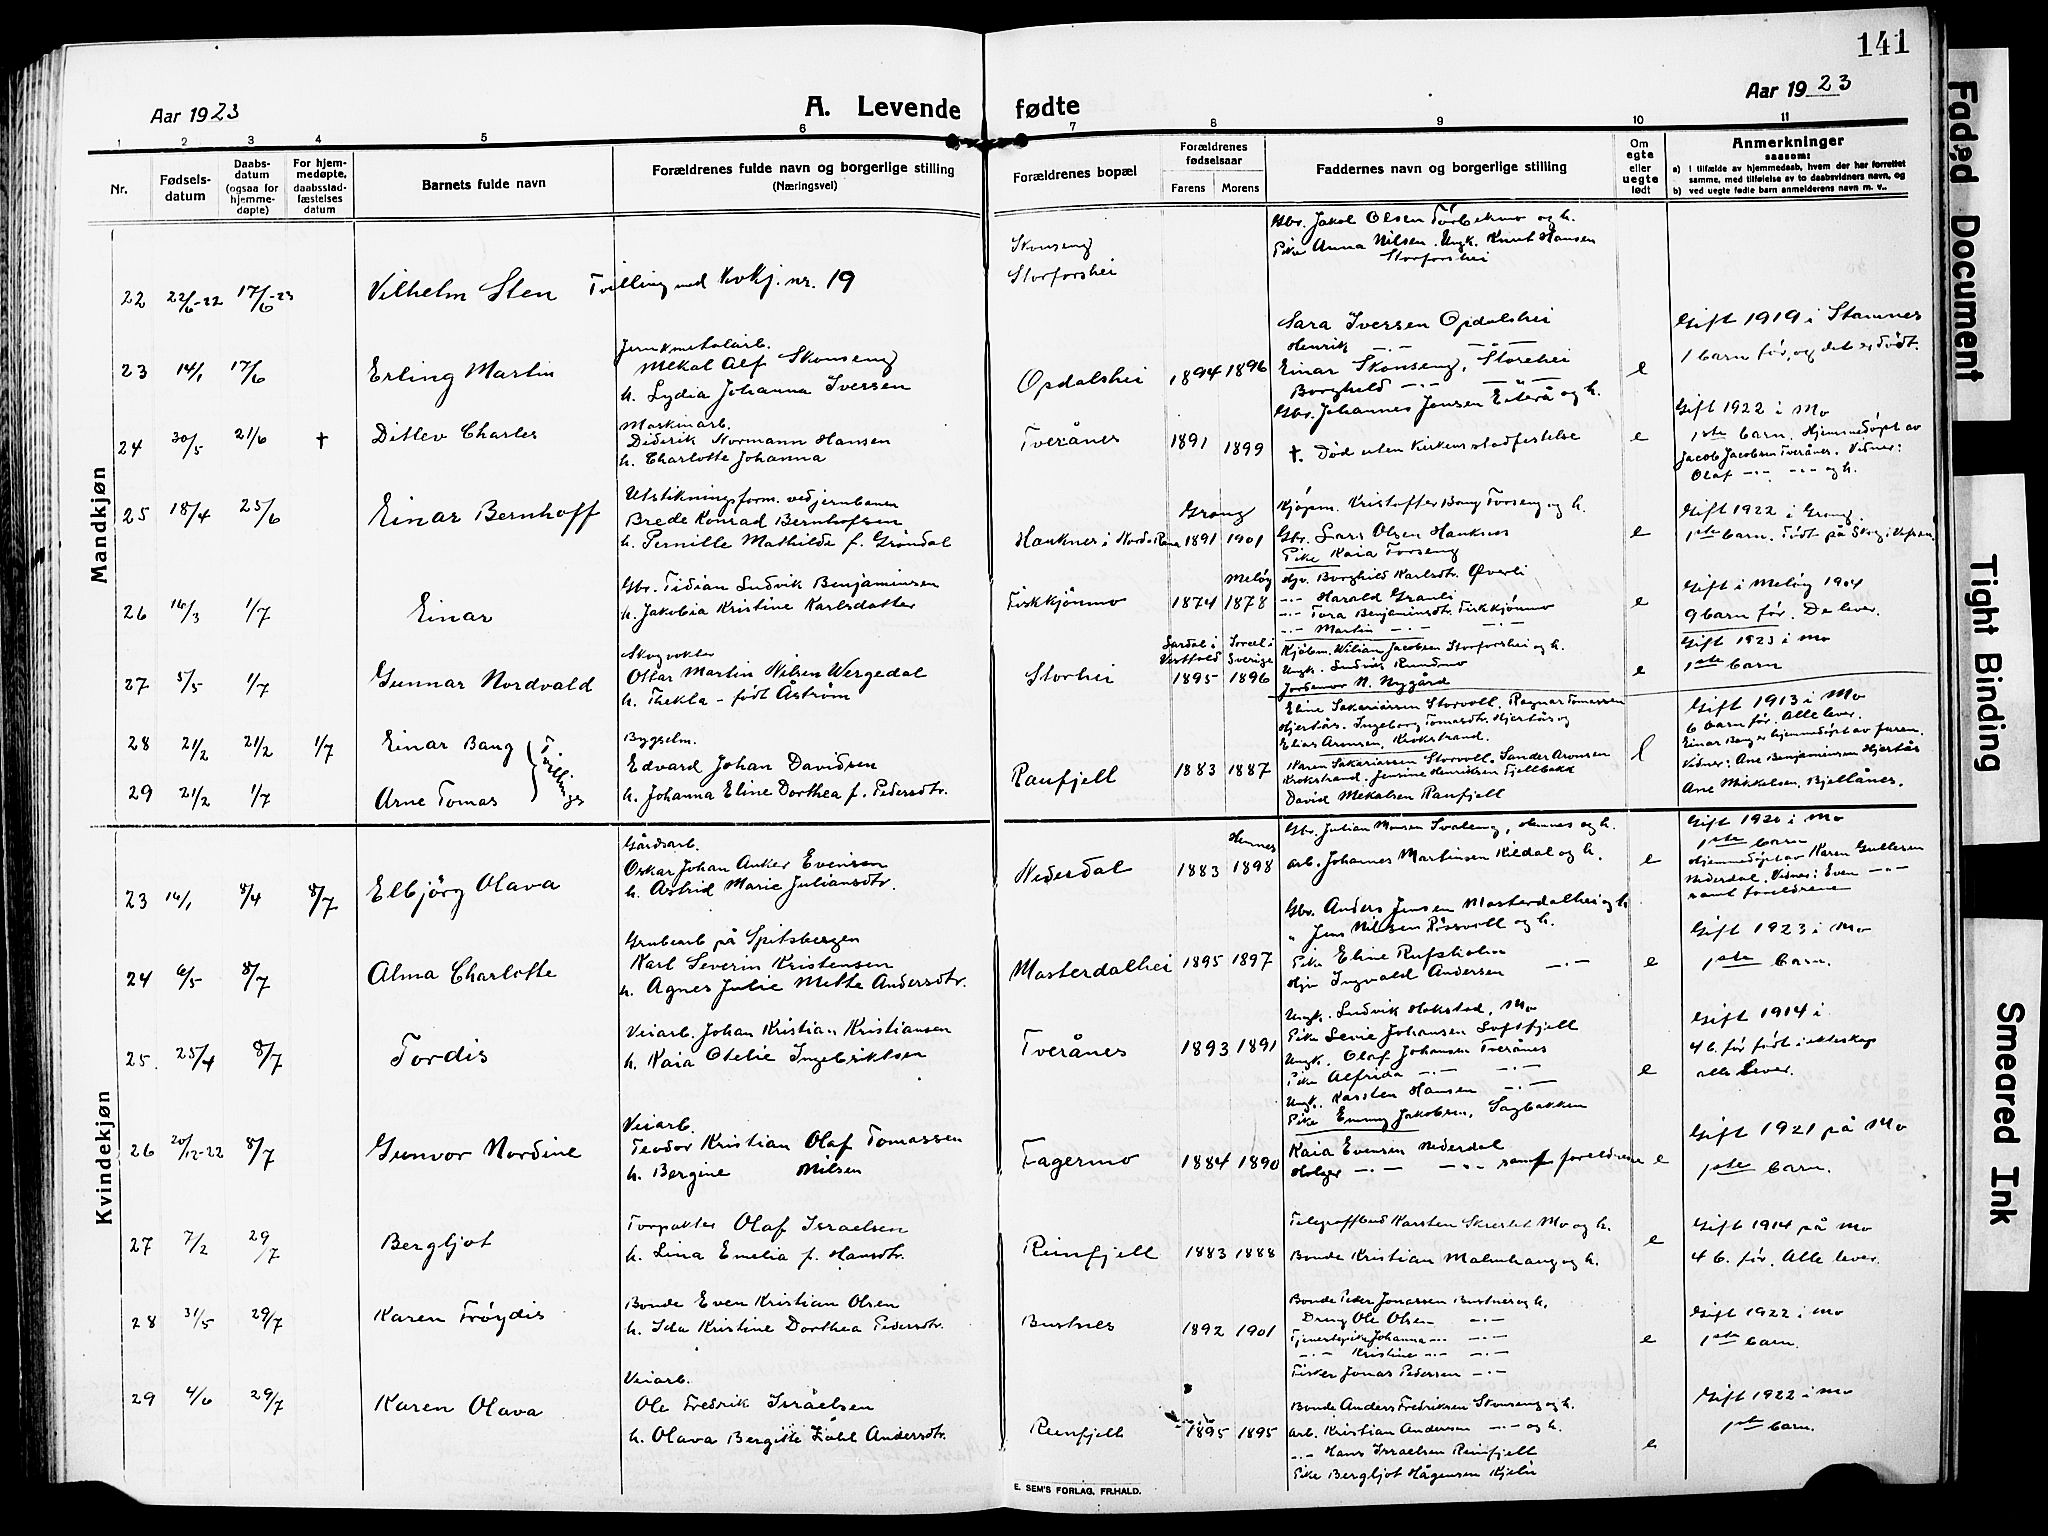 141
Aar 1923
A. Levende fødte
Aar 1923
1 2 3 4 5 6 7 8 9 10 11
Nr.
Fødsels-
datum
Daabs-
datum
(ogsaa for
hjemme-
døpte)
For hjem-
medøpte,
daabsstad-
fæstelses
datum
Barnets fulde navn
Forældrenes fulde navn og borgerlige stilling
(Næringsvei)
Forældrenes bopæl
Forældrenes
fødselsaar
Farens
Morens
Faddernes navn og borgerlige stilling
Om
egte
eller
uegte
født
Anmerkninger
saasom:
a) i tilfælde av hjemmedaab, hvem der har forrettet
samme, med tilføielse av to daabsvidners navn, og
b) ved uegte fødte barn anmelderens navn m. v..
Mandkjøn
22 22/6-22 17/6-23 Vilhelm Sten Tvilling med Kvkj. nr. 19
Skonseng
Storforshei
Gbr. Jakob Olsen og h.
Pike Anna Nilsen. Ungk. Knut Hansen
Storforshei
23 14/1 17/6 Erling Martin
Jern & metalarb.
Mekal Alf Skonseng
h. Lydia Johanna Iversen
Opdalshei 1894 1896
Sara Iversen Opdalshei
Henrik -"- -"-
Einar Skonseng, Storehei
Borghild -"- -"-
e
Gift 1919 i Stamnes
1 barn før, og det er født.
24 30/5 21/6 † Ditlev Charles
Maskinarb.
Diderik Normann Hansen
h. Charlotte Johanna
Tverånes 1891 1899
Gbr. Johannes Jensen Eiterå og h.
†. Død uten Kirkens stadfestelse
e
Gift 1922 i Mo
1ste barn. Hjemmedøpt av
Jacob Jacobsen Tverånes. Vidner:
Olaf -"- -"- og h.
25 18/4 25/6 Einar Bernhoff
Utstikningsform. ved jernbanen
Brede Konrad Bernhofsen
h. Pernille Mathilde f. Grøndal
Hauknes i Nord-Rana
Grong
1891 1901
Kjøpm. Kristoffer Bang Forseng og h.
Gbr. Lars Olsen Hauknes
Pike Kaia Forseng
e
Gift 1922 i Grong
1ste barn. Født på i Vefsen.
26 14/3 1/7 Einar
Gbr. Tidian Ludvik Benjaminsen
h. Jakobia Kristine Karlsdatter
Fiskkjønmo
Meløy
1874 1878
Hjv. Borghild Karlsdtr. Øverli
-"- Harald Granli
-"- Tora Benjaminsdtr. Fiskkjønmo
-"- Martin -"- -"-
e
Gift i Meløy 1904
9 barn før. De lever.
27 5/5 1/7 Gunnar Nordvald
Skogvokter
Ottar Martin Nilsen Wergedal
h. Thekla - født Åström
Storhei
Lardal i
Vestfold
1895
Sorsel i
Sverige
1896
Kjøbm. Wilian Jacobsen Storforshei og h.
Ungk. Ludvik Rundmo
Jordmor N. Nygård
e
Gift 1923 i Mo
1ste barn
28 21/2 21/2 1/7 Einar Bang
29 21/2 1/7 Arne Tomas
Tvillinger
Bygselm.
Edvard Johan Davidsen
h. Johanna Eline Dorthea f. Pedersdtr.
Raufjell 1883 1887
Eline Sakariassen Storvoll. Ragnar Tomassen
Hjertås. Ingeborg Tomasdtr. Hjertås og
Elias Aronsen, Krokstrand.
Karen Sakariassen Storvoll. Sander Aronsen
Krokstrand. Jensine Henriksen Fjellbekk
David Mekalsen Raufjell
e
Gift 1913 i Mo
6 barn før. Alle lever.
Einar Bang er hjemmedøpt av faren.
Vidner: Ane Benjaminsen Hjertås
Ane Mikkelsen, Bjellånes.
Kvindekjøn
23 14/1 8/4 8/7 Elbjørg Olava
Gårdsarb.
Oskar Johan Anker Evensen
h. Astrid Marie Juliansdtr.
Nederdal
Hemnes
1883 1898
Gbr. Julian Monsen Svaleng, Hemnes og h.
arb. Johannes Martinsen Kildal og h.
e
Gift 1920 i Mo
1ste barn
Hjemmedøpt av Karen Gullesen
Nederdal. Vidner: Even -"-
samt foreldrene
24 6/5 8/7 Alma Charlotte
Grubearb på Spitsbergen
Karl Severin Kristensen
h. Agnes Julie Mette Andersdtr.
Masterdalhei 1895 1897
Gbr. Anders Jensen Masterdalhei og h.
" Jens Nilsen Røsvoll og h.
Pike Eline Rufsholm
Hjv Ingvald Andersen -"-
e
Gift 1923 i Mo
1ste barn.
25. 25/4 8/7 Tordis
Veiarb. Johan Kristian Kristiansen
h. Kaia Otelie Ingebriktsen
Tverånes 1893 1891
Ungk. Ludvik Hokstad, Mo
Pike Levie Johansen Loftfjell
Ungk. Olaf Johansen Tverånes
Pike Alfrida -"- -"-
Ungk. Karsten Hansen -"-
Pike Emmy Jakobsen, Sagbakken
e
Gift 1914 i
4 b. før født i ekteskap
alle lever.
26 20/12-22 8/7 Gunvor Nordine
Veiarb.
Teodor Kristian Olaf Tomassen
h. Bergine Nilsen
Fagermo 1884 1890
Kaia Evensen Nederdal
Holger -"- -"- samt foreldrene
e
Gift 1921 på Mo
1ste barn.
27 7/2 29/7 Bergljot
Forpakter Olaf Israelsen
h. Lina Emelia f. Hansdtr.
Reinfjell 1883 1888
Telegrafbud Karsten Skrestet Mo og h.
Bonde Kristian Malmhaug og h.
e
Gift 1914 på Mo
4 b. før. Alle lever.
28 31/5 29/7 Karen Frøydis
Bonde Even Kristian Olsen
h. Ida Kristine Dorthea Pedersdtr.
Bustnes 1892 1901
Bonde Peder Jonassen Bustnes og h.
Dreng Ole Olsen -"-
Tjenestepike Johanna -"- -"-
-"- Kristine -"- -"-
Fisker Jonas Pedersen -"-
e
Gift 1922 i Mo
1ste barn.
29 4/6 29/7 Karen Olava
Veiarb.
Ole Fredrik Isråelsen
h. Olava Bergitte Zahl Andersdtr.
Reinfjell 1895 1895
Bonde Anders Fredriksen Skonseng og h.
arb. Kristian Andersen -"- og h.
-"- Hans Israelsen Reinfjell
Pike Bergljot Hågensen Kjeln
e
Gift 1922 i Mo
1ste barn.
E. SEM'S FORLAG, FR.HALD.
Faded Document
Tight Binding
Smeared Ink